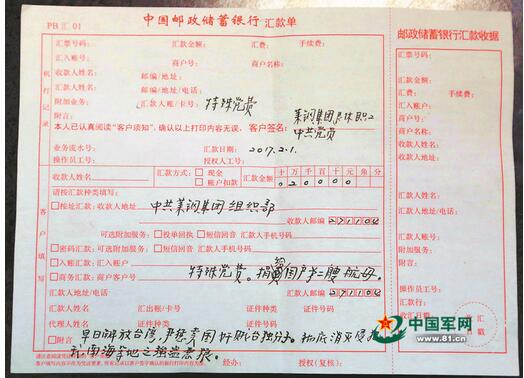 PB汇 01
中国邮政储蓄银行 汇款单
邮政储蓄银行汇款收据
机打记录
汇票号码: 汇款金额: 汇费: 手续费:
汇入账号: 商户号: 商户名称:
收款人姓名: 邮编/地址:
汇款人姓名: 邮编/地址/电话:
附加业务: 汇款人账/卡号: 特殊党费
附言: 莱钢集团退休职工
本人已认真阅读“客户须知”,确认以上打印内容无误。 客户签名: 中共党员
业务流水号: 汇款日期: 2017.2.1.
操作员工号: 授权人工号:
客户填写
收款人姓名: 汇款方式: 现金 账户扣款 汇款金额 十万千百十元角分
020000
请按汇款种类填写:
按址汇款: 收款人地址 中共莱钢集团组织部
收款人邮编 271104
可选附加服务: 投单回执 短信回音 汇款人手机号码
密码汇款(可选附加服务: 短信回音 汇款人手机号码
入账汇款: 汇入账户
商务汇款: 商户客户号 特殊党费。捐
汇款人地址: 汇款人邮编 271104
汇款人姓名 汇出账/卡号 证件种类 证件号码:
代理人姓名 证件种类 证件号码:
附言 早日解放台湾,严惩卖国奸贼台独分子。彻底消灭侵犯
南海等地之强盗恶狼。
经办: 授权(复核):
汇票号码:
汇款金额:
汇费: 手续费:
汇入账户:
商户号:
商户名称:
收款人姓名:
汇款人姓名:
汇款人地址:
附加服务:
操作员工号:
汇款行:
收汇日期:
收汇日戳
中国军网
www.81.cn